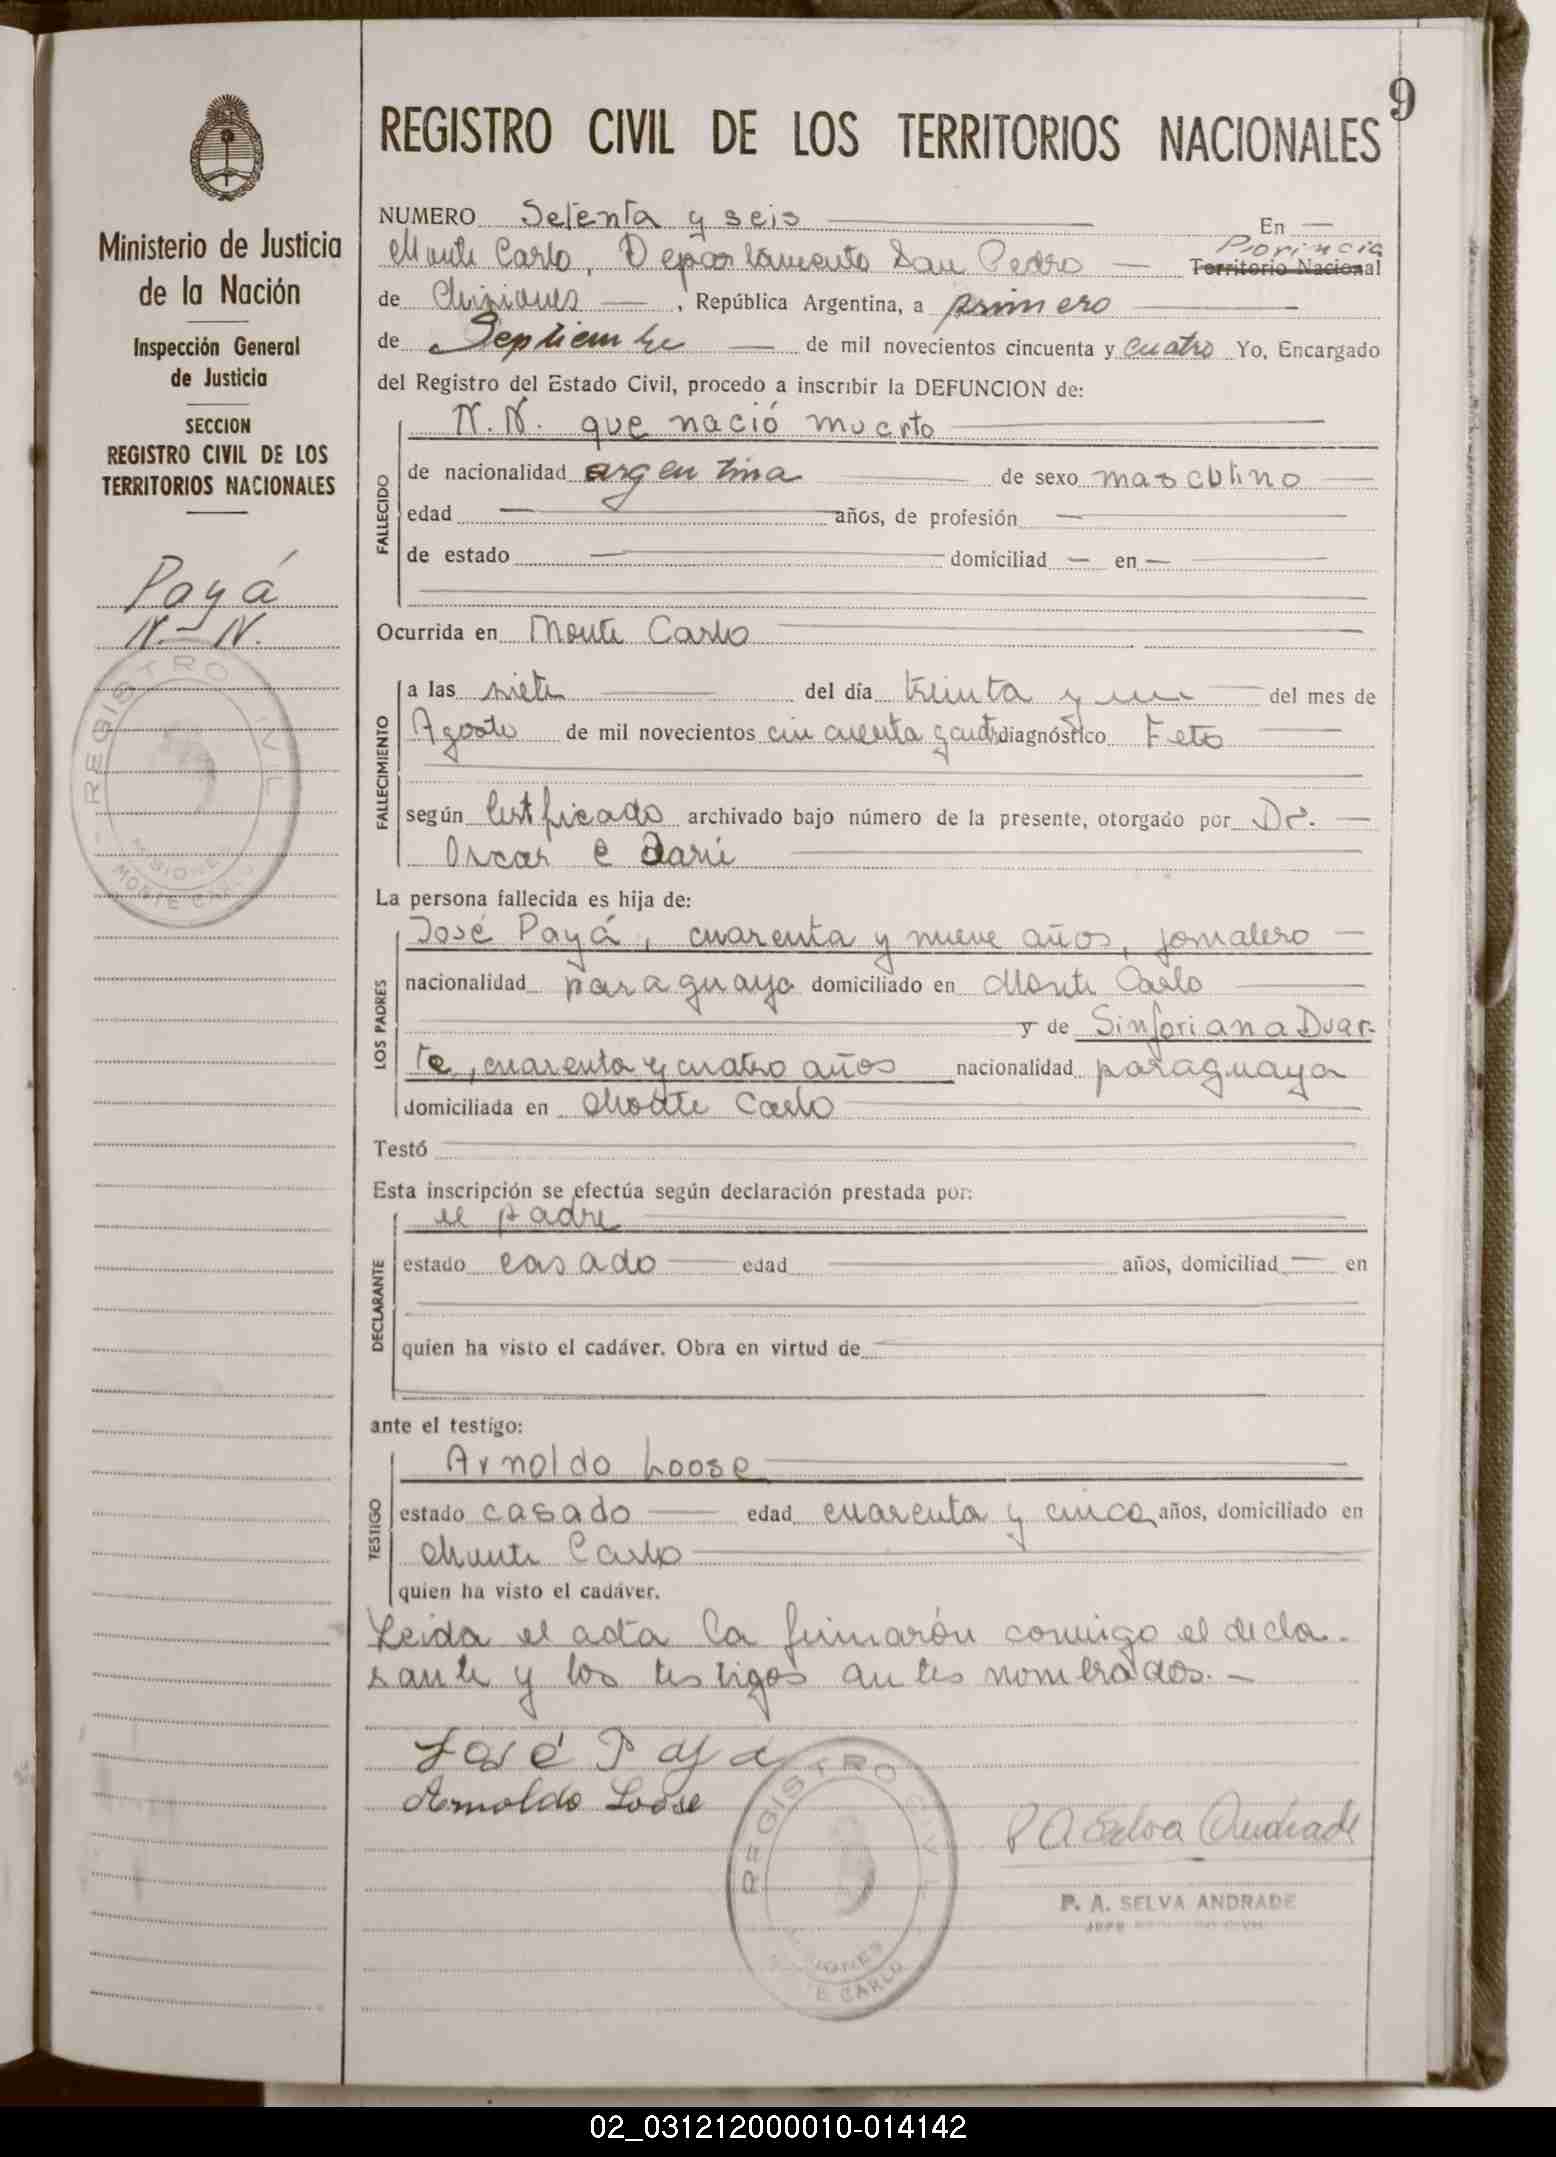 9
REGISTRO CIVIL DE LOS TERRITORIOS NACIONALES
Ministerio de Justicia
de la Nación
Inspección General
de Justicia
SECCION
REGISTRO CIVIL DE LOS
TERRITORIOS NACIONALES
Payá
N. N.
REGISTRO CIVIL
MISIONES
MONTE CARLO
NUMERO Setenta y seis En
Monte Carlo, Departamento San Pedro Provincia
Territorio Nacional
de Misiones, República Argentina, a primero
de Septiembre de mil novecientos cincuenta y cuatro Yo, Encargado
del Registro del Estado Civil, procedo a inscribir la DEFUNCION de:
FALLECIDO
N. N. que nació muerto
de nacionalidad argentina de sexo masculino
edad años, de profesión
de estado domiciliad en
Ocurrida en Monte Carlo
FALLECIMIENTO
a las siete del día treinta y un del mes de
Agosto de mil novecientos cincuenta y cuatro diagnóstico Feto
según Certificado archivado bajo número de la presente, otorgado por Dr.
Oscar C
La persona fallecida es hija de:
LOS PADRES
José Payá, cuarenta y nueve años, jornalero
nacionalidad paraguayo domiciliado en Monte Carlo
y de Sinforiana Duar-
te, cuarenta y cuatro años nacionalidad paraguaya
domiciliada en Monte Carlo
Testó
Esta inscripción se efectúa según declaración prestada por:
DECLARANTE
el padre
estado casado edad años, domiciliad en
quien ha visto el cadáver. Obra en virtud de
ante el testigo:
TESTIGO
Arnoldo Loose
estado casado edad cuarenta y cinco años, domiciliado en
Monte Carlo
quien ha visto el cadáver.
Leida el acta la firmarón conmigo el decla-
rante y los testigos antes nombrados.-
José Paya
Arnoldo Loose
REGISTRO CIVIL
MISIONES
E CARLO
P A Selva Andrade
P. A. SELVA ANDRADE
JEFE
02_031212000010-014142